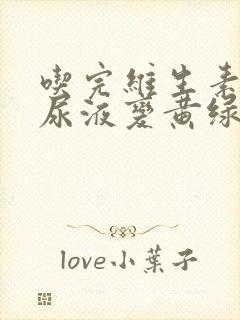 喫完維生素
尿液變黃綠
love小葉子